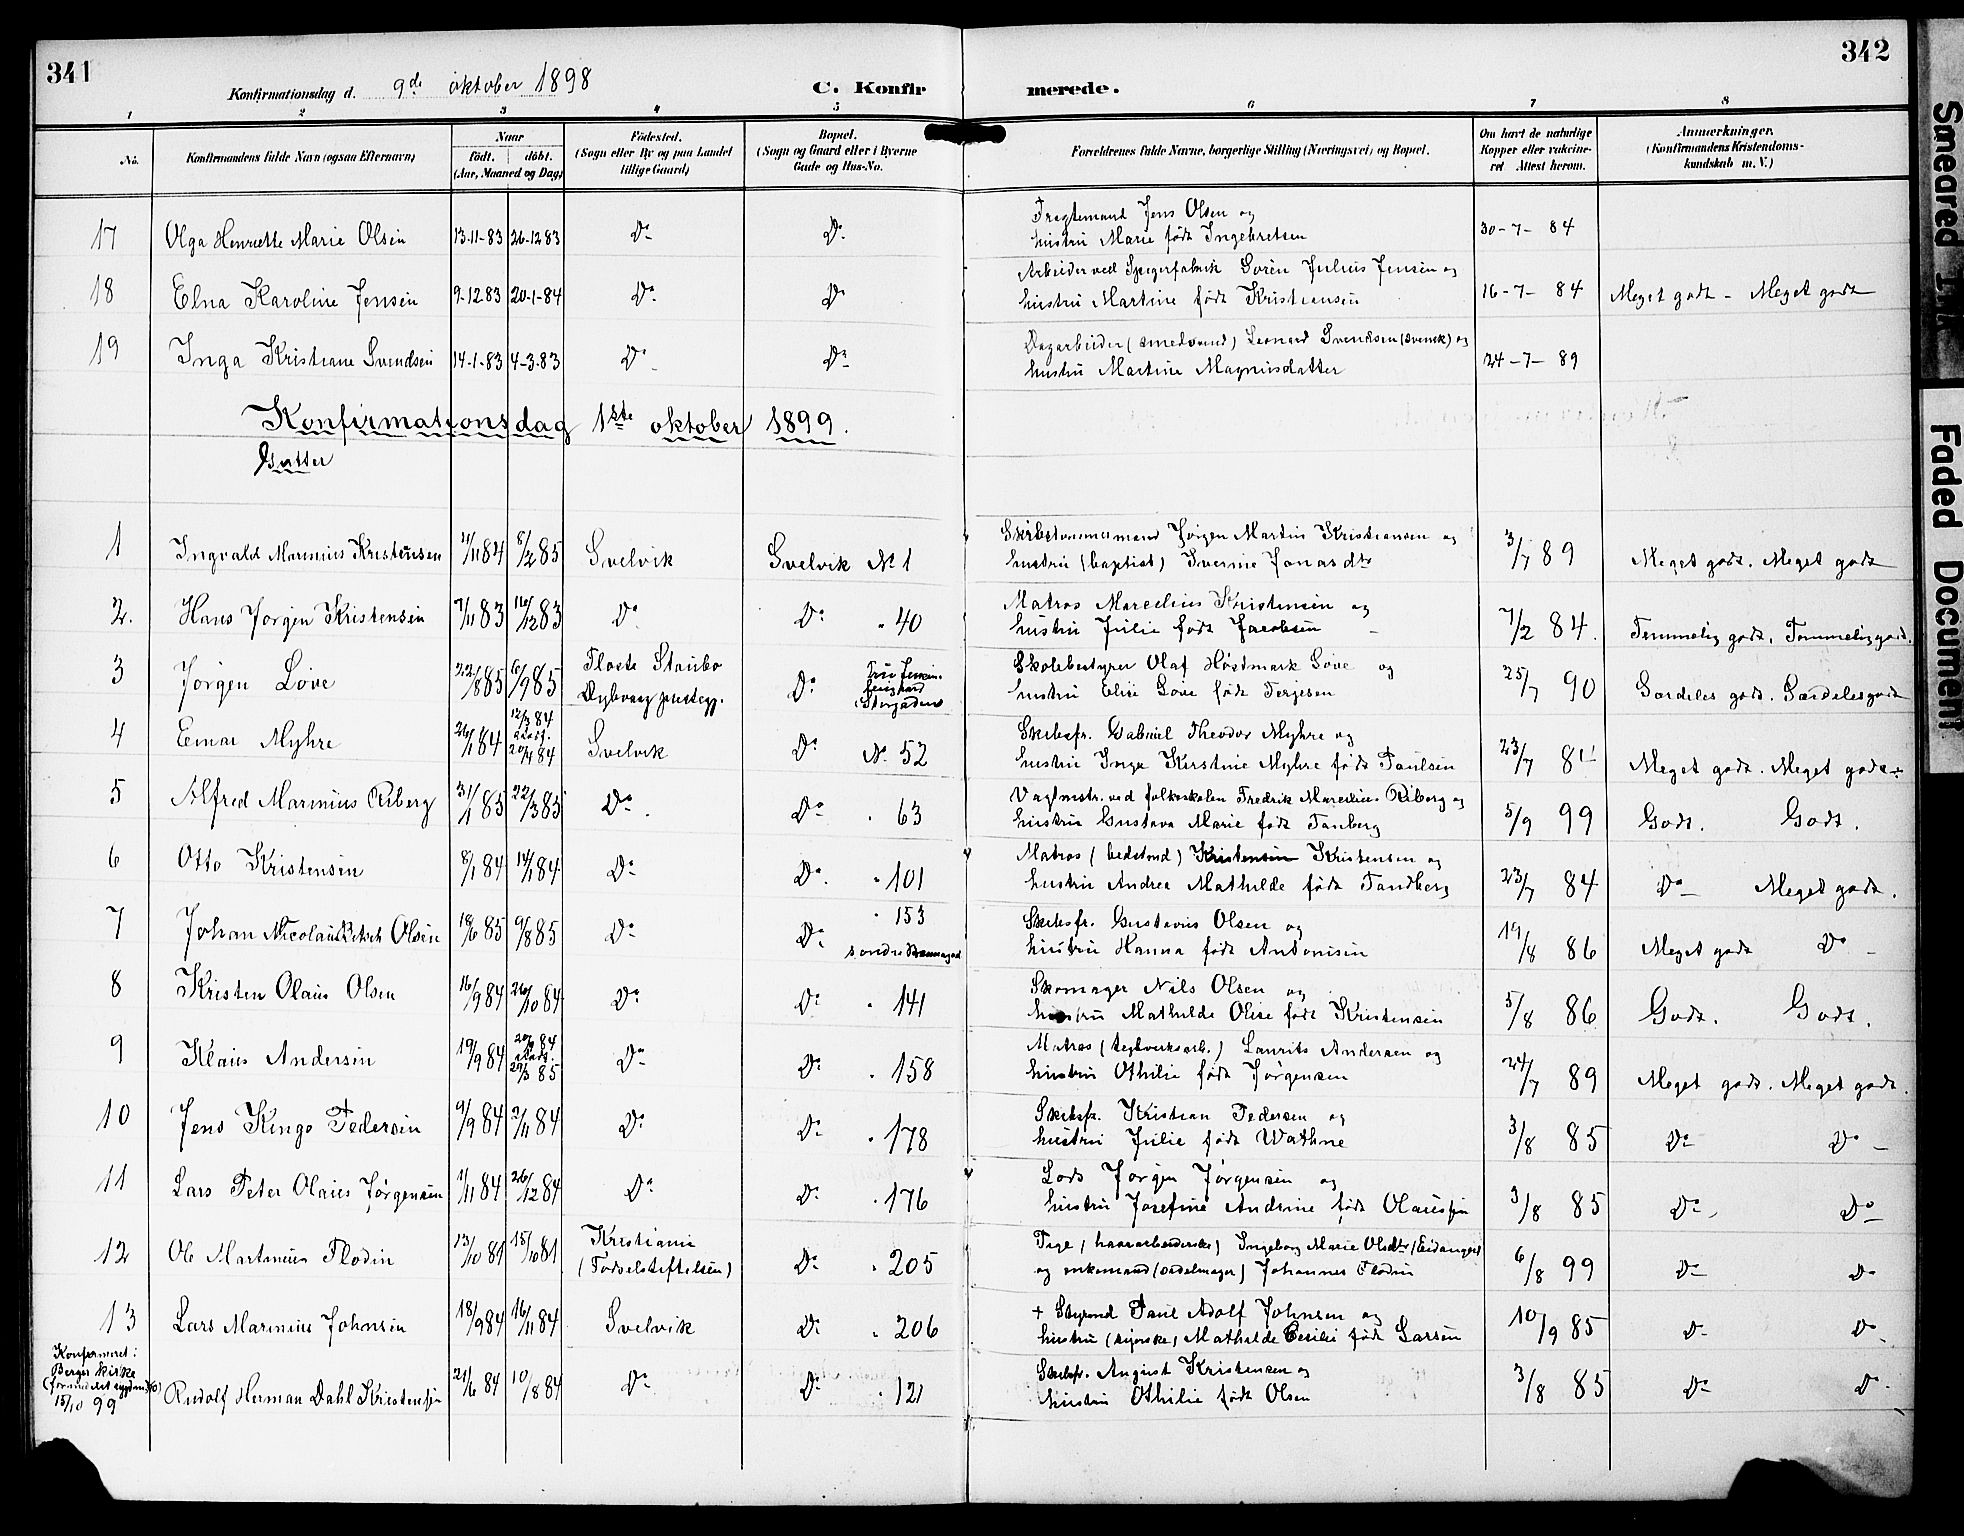 341
342
Konfirmationsdag d. 9de oktober 1898
C. Konfirmerede.
1 2 3 4 5 6 7 8
No.
Konfirmandens fulde Navn (ogsaa Efternavn)
Naar
født. døbt.
(Aar, Maaned og Dag)
Fødested.
(Sogn eller By og paa Landet
tillige Gaard)
Bopæl.
(Sogn og Gaard eller i Byerne
Gade og Hus-No.
Forældrenes fulde Navne, borgerlige Stilling (Næringsvei) og Bopæl.
Om havt de naturlige
Kopper eller vakcine-
ret Attest herom.
Anmærkninger.
(Konfirmandens Kristendoms-
kundskab m. V.)
17 Olga Henriette Marie Olsen 13-11-83 26-12 83 Do Do Fragtemand Jens Olsen og
hustru Marie født Ingebretsen 30-7-84
18 Elna Karoline Jensen 9-12 83 20-1-84 Do Do Arbeider ved Spigerfabrik Soren Julius Jensen og
hustru Martine født Kristiansen 16-7-84 Meget godt - Meget godt
19 Inga Kristiane Svendsen 14-1-83 4-3-83 Do Do Dagarbeider (smedsvend) Leonard Svendsen (svensk) og
hustru Martine Magnusdatter 24-7-89
Konfirmationsdag 1ste oktober 1899.
Gutter
1 Ingvald Marinius Kristensen 84 8/2 85 Svelvik Svelvik No 1 Skibstømmermand Jørgen Martin Kristiansen og
hustru (baptist) Jonasdtr 3/7 89 Meget godt. Meget godt
2. Hans Jørgen Kristensen 7/11 83 16/12 83 Do Do " 40 Matros Marcelius Kristensen og
hustru Julie født Jacobsen 7/2 84. Temmelig godt. Temmelig godt.
3 Jørgen Løve 22/8 85 6/9 85 Staubo
Dybvaag prestegj. Do
(Storgaden) Skolebestyrer Olaf Høstmark Løve og
hustru Elise Løve født Terjesen 25/7 90 Særdeles godt. Særdeles godt
4 Einar Myhre 26/1 84 12/3 84
20/4 84 Svelvik Do No 52 Skibsfr. Gabriel Theodor Myhre og
hustru Inga Kirstine Myhre født Paulsen 23/7 84 Meget godt. Meget godt
5 Alfred Marinius Riberg 31/1 85 22/3 85 Do Do " 63 Vagtmstr. ved folkeskolen Fredrik Marcelius Riberg og
hustru Gustava Marie født Tanberg 5/9 99 Godt. Godt.
6 Otto Kristensen 8/1 84 14/4 84 Do Do. " 101 Matros (bedstond) Kristensen Kristensen og
hustru Andrea Mathilde født Tandberg 23/7 84 Do Meget godt.
7 Johan Nicolai Olsen 18/6 85 9/8 85 Do Do " 153
Skibsfr. Gustavus Olsen og
hustru Hanna født Antonisen 19/8 86 Meget godt Do
8 Kristen Olaus Olsen 16/9 84 26/10 84 Do Do " 141 Skomager Nils Olsen og
hustru Mathilde Olise født Kristensen 5/8 86 Godt. Godt.
9 Klaus Andersen 19/9 84 20/9 84
29/3 85 Do Do " 158 Matros (teglverksarb.) Laurits Andersen og
hustru Othilie født Jørgensen 24/7 89 Meget godt. Meget godt.
10 Jens Kingo Pedersen 9/9 84 2/11 84 Do Do " 178 Skibsfr. Kristian Pedersen og
hustru Julie født Wathne 3/8 85 Do Do
11 Lars Peter Olaus Jørgensen 1/11 84 26/12 84 Do Do " 176 Lods Jørgen Jørgensen og
hustru Josefine Andrine født Olaussen 3/8 85 Do Do
12 Ole Martinius Flodin 13/10 81 15/10 81 Kristiania
(Fødselstiftelsen) Do " 205 Pige (haararbeiderske) Ingeborg Marie Olsdtr (Eidanger)
og enkemand (sadelmager) Johannes Flodin 6/8 99 Do Do
13 Lars Marinius Johnsen 18/9 84 16/11 84 Svelvik Do " 206 + Styrmd Paul Adolf Johnsen og
hustru (syerske) Mathilde Cesilie født Larsen 10/9 85 Do Do
Konfirmeret i
Berger kirke
15/10 99 Rudolf Herman Dahl Kristensen 21/6 84 10/8 84 Do Do " 121 Skibsfr. August Kristensen og
hustru Othilie født Olsen 3/8 85 Do Do
Smeared
Faded Document